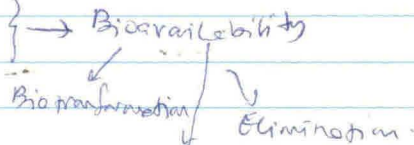 } → Bioavailability
Biotransformation
Elimination.